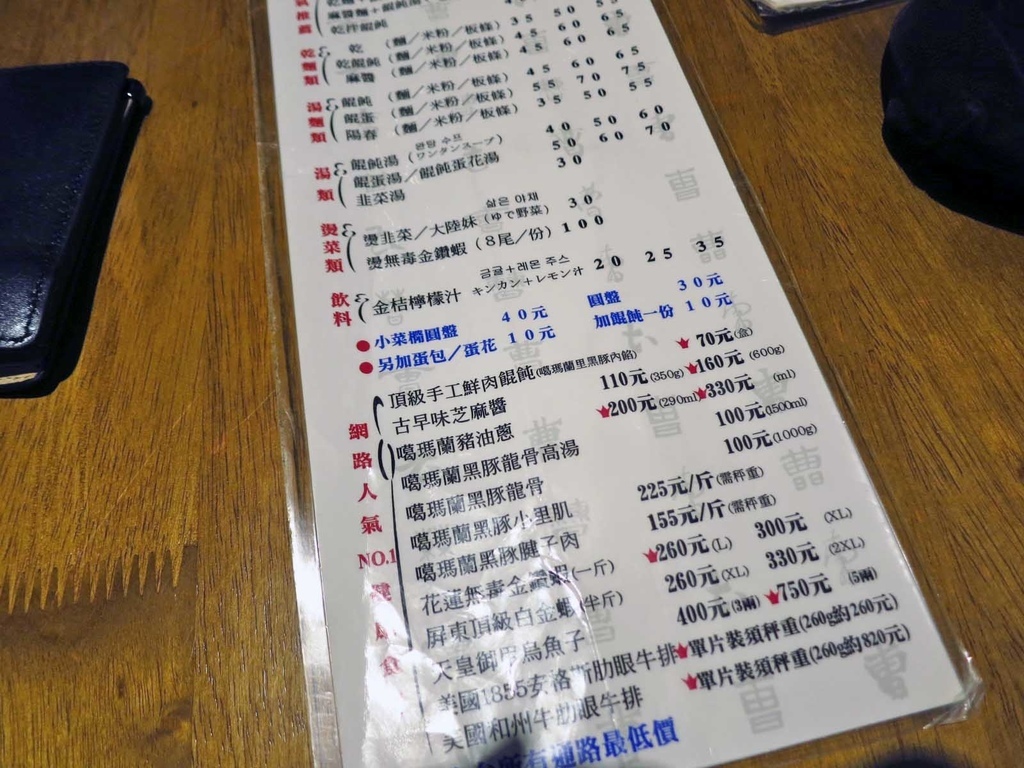 乾拌餛飩 35 50 55
乾麵類
乾 (麵/米粉/板條) 45 60 65
乾餛飩 (麵/米粉/板條) 45 60 65
麻醬 (麵/米粉/板條)
湯麵類
餛飩 (麵/米粉/板條) 45 60 65
餛蛋 (麵/米粉/板條) 55 70 75
陽春 (麵/米粉/板條) 35 50 55
湯類
완탕 수프
餛飩湯 (ワンタンスープ) 40 50 60
餛蛋湯/餛飩蛋花湯 50 60 70
韭菜湯 30
燙菜類
삶은 야채
燙韭菜/大陸妹 (ゆで野菜) 30
燙無毒金鑽蝦 (8尾/份) 100
飲料
금귤+레몬 주스
金桔檸檬汁 キンカン+レモン汁 20 25 35
小菜櫥圓盤 40元 圓盤 30元
另加蛋包/蛋花 10元 加餛飩一份 10元
網路人氣NO.1
頂級手工鮮肉餛飩(噶瑪蘭里黑豚內餡) 70元(盒)
古早味芝麻醬 110元(350g) 160元(600g)
噶瑪蘭豬油蔥 200元(290ml) 330元 (ml)
噶瑪蘭黑豚龍骨高湯 100元(1500ml)
噶瑪蘭黑豚龍骨 100元(1000g)
噶瑪蘭黑豚小里肌 225元/斤(需秤重)
噶瑪蘭黑豚腱子肉 155元/斤(需秤重)
花蓮無毒金鑽蝦(一斤) 260元(L) 300元 (XL)
屏東頂級白金蝦(半斤) 260元(XL) 330元 (2XL)
天皇御用烏魚子 400元(3兩) 750元 (5兩)
美國1855安洛斯肋眼牛排 單片裝須秤重(260g約260元)
美國和州牛肋眼牛排 單片裝須秤重(260g約820元)
所有通路最低價